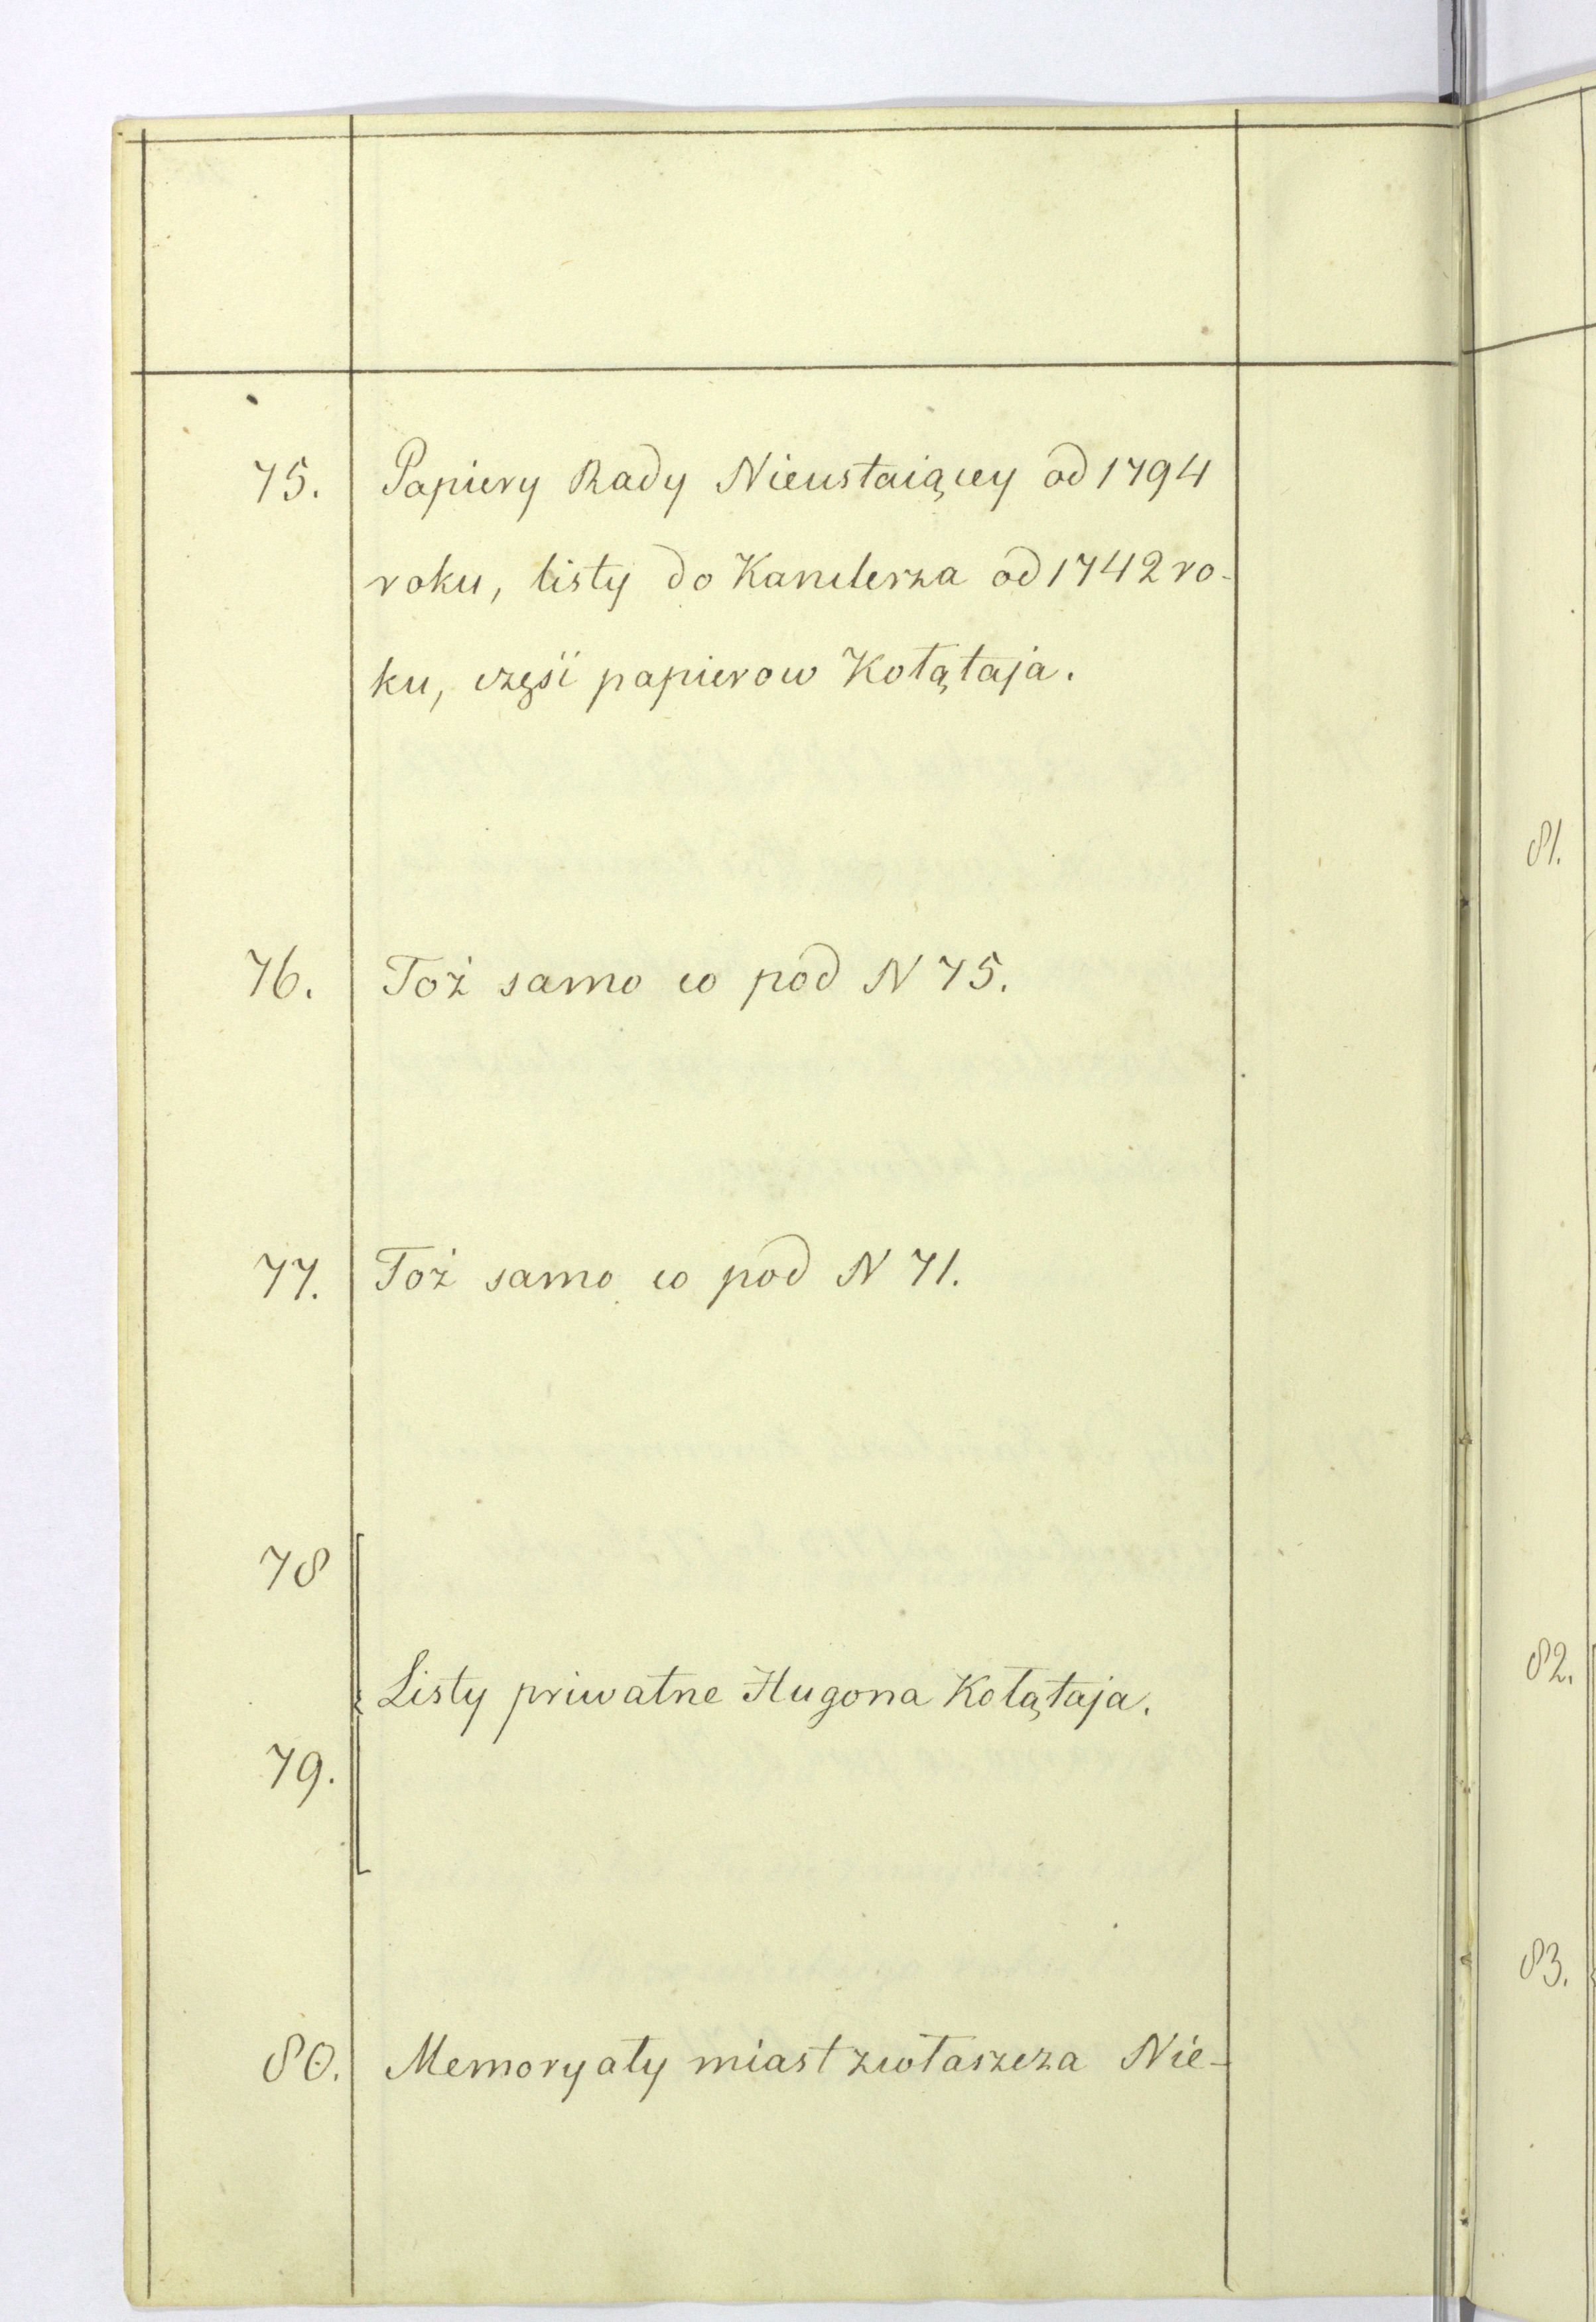 75. Papiery Rady Nieustaiącey od 1794
roku, listy do Kanclerza od 1742 ro-
ku, część papierow Kołątaja.
76. Toż samo co pod N 75.
77. Toż samo co pod N 71.
78
Listy priwatne Hugona Kołątaja.
79.
80. Memoryały miast zwłaszcza Nie-
81.
82.
83.